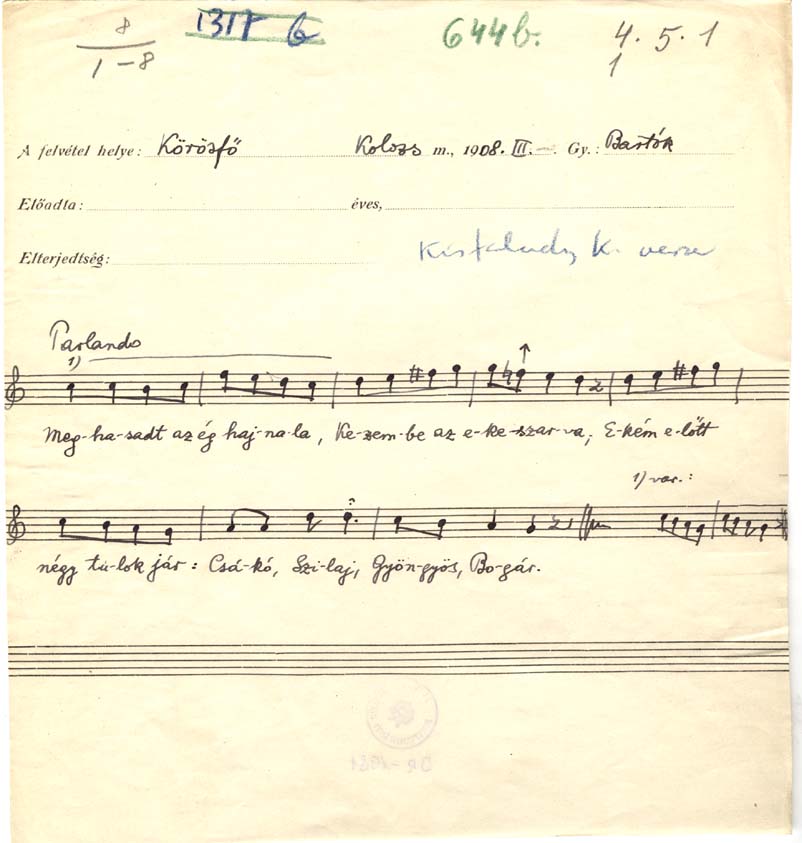 8 1317 b 644b. 4. 5. 1
1-8 1
A felvétel helye: Körösfő Kolozs m., 1908. III. —. Gy.: Bartók
Előadta: éves,
Elterjedtség: Kisfaludy K. verse
Parlando
1)
Meg-ha-sadt az ég haj-na-la, Ke-zem-be az e-ke-szar-va; E-kém e-lőtt
1) var.:
négy tu-lok jár: Csá-kó, Szi-laj, Gyön-gyös, Bo-gár.